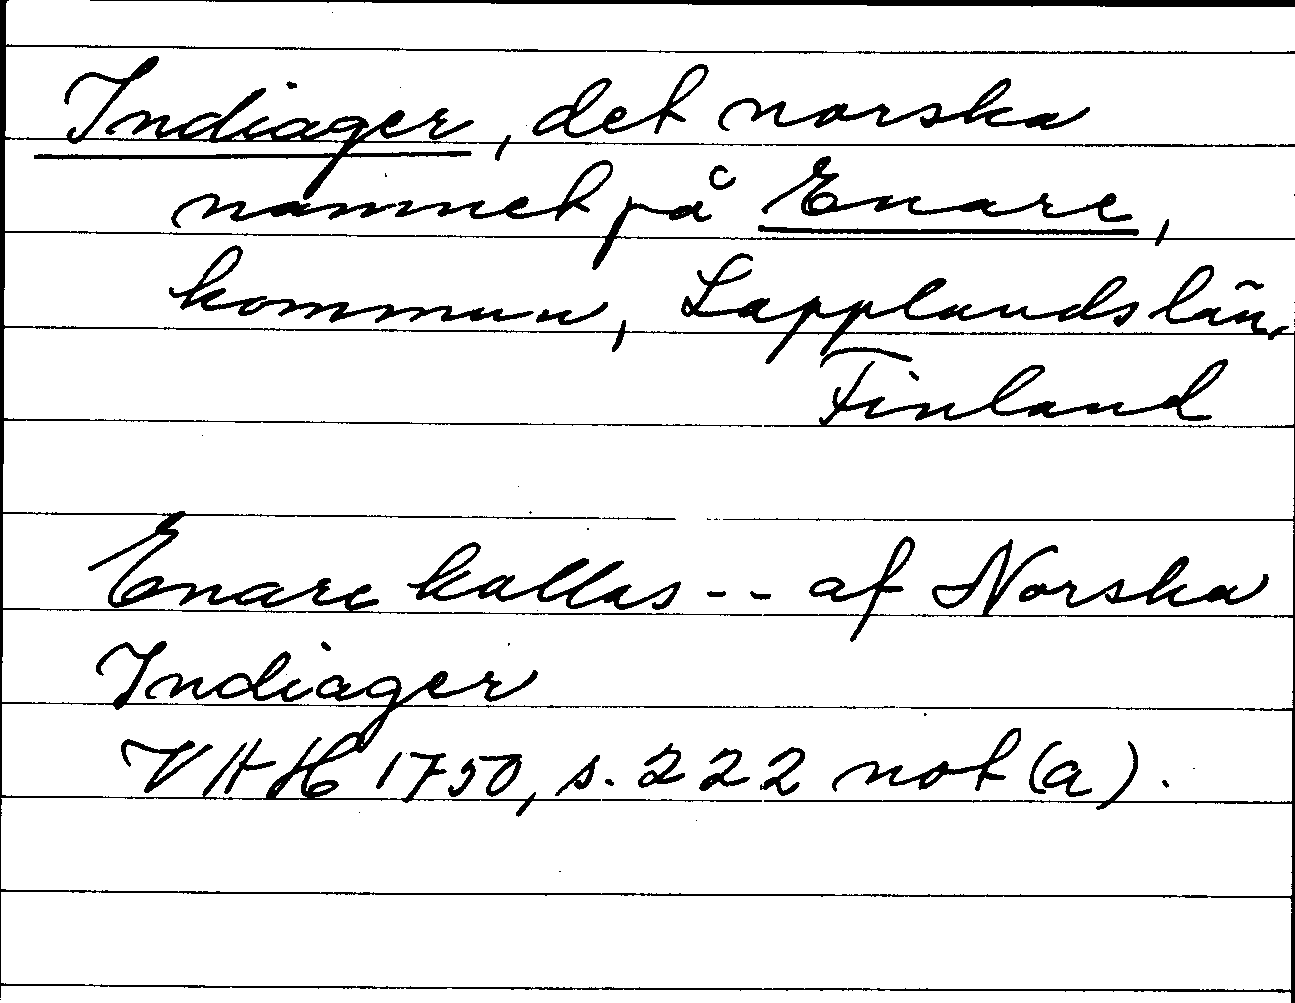 Indiager, det norska
namnet på Enare,
kommun, Lapplands län,
Finland
Enare kallas -- af Norska
Indiager
VHH 1750, s. 222 not (a).